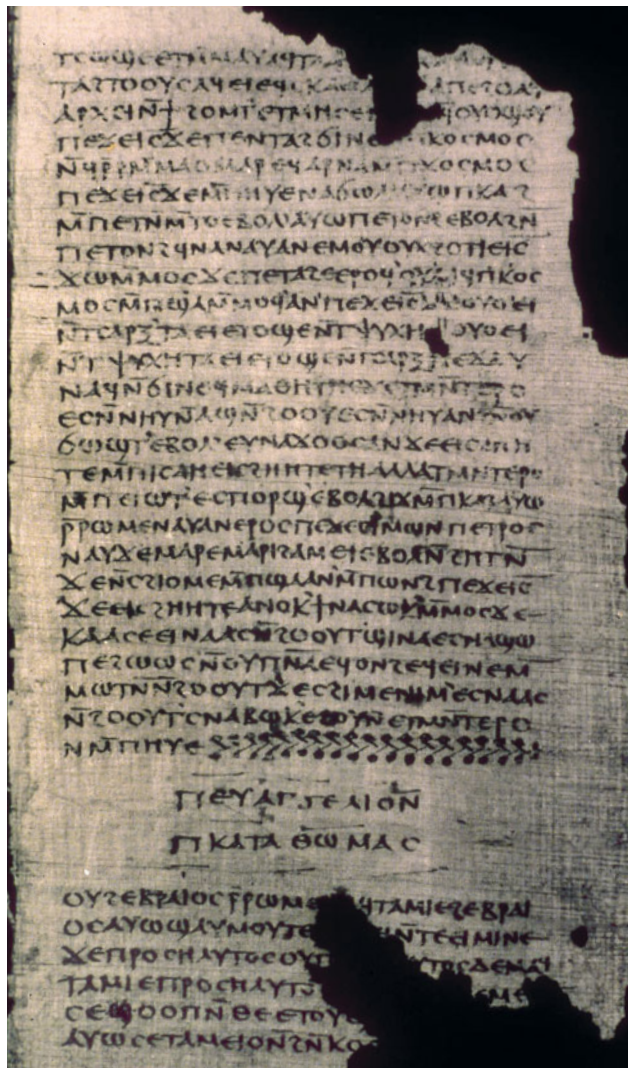 ⲧⲥⲱϣⲉⲉⲧⲙ̅ⲙⲁⲩⲁϥⲧⲁ
ⲧⲁϩⲧⲟⲟⲩⲥⲁϥⲉⲓⲉϥⲥⲕⲁ ⲁⲡⲉϩⲟⲁϥ
ⲁⲣⲭⲉⲓⲛ̅ϯϩⲟⲙⲧⲉⲧⲙⲏⲥⲉ ϥⲟⲩⲟϣⲟⲩ
ⲡⲉϫⲉⲓ̅ⲥ̅ϫⲉⲡⲉⲛⲧⲁϩϭⲓⲛⲉ ⲡⲕⲟⲥⲙⲟⲥ
ⲛ̅ϥⲣ̅ⲣⲙ̅ⲙⲁⲟⲙⲁⲣⲉϥⲁⲣⲛⲁⲙ̅ⲡⲕⲟⲥⲙⲟⲥ
ⲡⲉϫⲉⲓ̅ⲥ̅ϫⲉⲙ̅ⲡⲏⲩⲉⲛⲁϭⲱⲗⲁⲩⲱⲡⲕⲁϩ
ⲙ̅ⲡⲉⲧⲛ̅ⲙ̅ⲧⲟⲉⲃⲟⲗⲁⲩⲱⲡⲉⲧⲟⲛϩⲉⲃⲟⲗϩⲛ̅
ⲡⲉⲧⲟⲛϩϥⲛⲁⲛⲁⲩⲁⲛⲉⲙⲟⲩⲟⲩⲭϩⲟⲧⲓⲉⲓ̅ⲥ̅
ϫⲱⲙ̅ⲙⲟⲥϫⲉⲡⲉⲧⲁϩⲉⲉⲣⲟϥⲟⲩⲁⲁϥⲡⲕⲟⲥ
ⲙⲟⲥⲙ̅ⲡϣⲁⲙ̅ⲙⲟϥⲁⲛⲡⲉϫⲉⲓ̅ⲥ̅ϫⲉⲟⲩⲟⲉⲓ
ⲛ̅ⲧⲥⲁⲣⲝⲧⲁⲉⲓⲉⲧⲟϣⲉⲛ̅ⲧⲯⲩⲭⲏⲟⲩⲟⲉⲓ
ⲛ̅ⲧⲯⲩⲭⲏⲧⲁⲉⲓⲉⲧⲟϣⲉⲛ̅ⲧⲥⲁⲣⲝⲡⲉϫⲁⲩ
ⲛⲁϥⲛ̅ϭⲓⲛⲉϥⲙⲁⲑⲏⲧⲏⲥϫⲉⲧⲙⲛ̅ⲧⲉⲣⲟ
ⲉⲥⲛ̅ⲛⲏⲩⲛ̅ⲁϣⲛ̅ϩⲟⲟⲩⲉⲥⲛ̅ⲛⲏⲩⲁⲛϩⲛ̅ⲟⲩ
ϭⲱϣⲧⲉⲃⲟⲗⲉⲩⲛⲁϫⲟⲟⲥⲁⲛϫⲉⲉⲓⲥϩⲏⲏ
ⲧⲉⲙ̅ⲡⲓⲥⲁⲏⲉⲓⲥϩⲏⲏⲧⲉⲧⲏⲁⲗⲗⲁⲧⲙⲛ̅ⲧⲉⲣⲟ
ⲙ̅ⲡⲉⲓⲱⲧⲉⲥⲡⲟⲣϣⲉⲃⲟⲗϩⲓϫⲙ̅ⲡⲕⲁϩⲁⲩⲱ
ⲣ̅ⲣⲱⲙⲉⲛⲁⲩⲁⲛⲉⲣⲟⲥⲡⲉϫⲉⲥⲓⲙⲱⲛⲡⲉⲧⲣⲟⲥ
ⲛⲁⲩϫⲉⲙⲁⲣⲉⲙⲁⲣⲓϩⲁⲙⲉⲓⲉⲃⲟⲗⲛ̅ϩⲏⲧⲛ̅
ϫⲉⲛ̅ⲥϩⲓⲟⲙⲉⲙ̅ⲡϣⲁⲁⲛⲙ̅ⲡⲱⲛϩⲡⲉϫⲉⲓ̅ⲥ̅
ϫⲉⲉⲓⲥϩⲏⲏⲧⲉⲁⲛⲟⲕϯⲛⲁⲥⲱⲕⲙ̅ⲙⲟⲥϫⲉ
ⲕⲁⲁⲥⲉⲉⲓⲛⲁⲁⲥⲛ̅ϩⲟⲟⲩⲧϣⲓⲛⲁⲉⲥⲛⲁϣⲱ
ⲡⲉϩⲱⲱⲥⲛ̅ⲟⲩⲡ̅ⲛ̅ⲁ̅ⲉϥⲟⲛϩⲉϥⲉⲓⲛⲉⲙ̅
ⲙⲱⲧⲛ̅ⲛ̅ϩⲟⲟⲩⲧϫⲉⲥϩⲓⲙⲉⲛⲓⲙⲉⲥⲛⲁⲁⲥ
ⲛ̅ϩⲟⲟⲩⲧⲥⲛⲁⲃⲱⲕⲉϩⲟⲩⲛⲉⲧⲙⲛ̅ⲧⲉⲣⲟ
ⲛⲙ̅ⲡⲏⲩⲉ
ⲡⲉⲩⲁⲅⲅⲉⲗⲓⲟⲛ
ⲡⲕⲁⲧⲁⲑⲱⲙⲁⲥ
ⲟⲩϩⲉⲃⲣⲁⲓⲟⲥⲣ̅ⲣⲱⲙⲉ ϥⲧⲁⲙⲓⲉϩⲉⲃⲣⲁⲓ
ⲟⲥⲁⲩⲱϣⲁⲩⲙⲟⲩⲧⲉ ⲛ̅ⲧⲉⲉⲓⲙⲓⲛⲉ
ϫⲉⲡⲣⲟⲥⲏⲗⲩⲧⲟⲥⲟⲩⲡ ⲩⲧⲟⲥⲇⲉⲙⲁϥ
ⲧⲁⲙⲓⲉⲡⲣⲟⲥⲏⲗⲩⲧⲟ ⲉⲙⲉ
ⲥⲉϣⲟⲟⲡⲛ̅ⲑⲉⲉⲧⲟⲩ
ⲁⲩⲱⲥⲉⲧⲁⲙⲉⲓⲟⲛ̅ϩⲛ̅ⲕⲟ